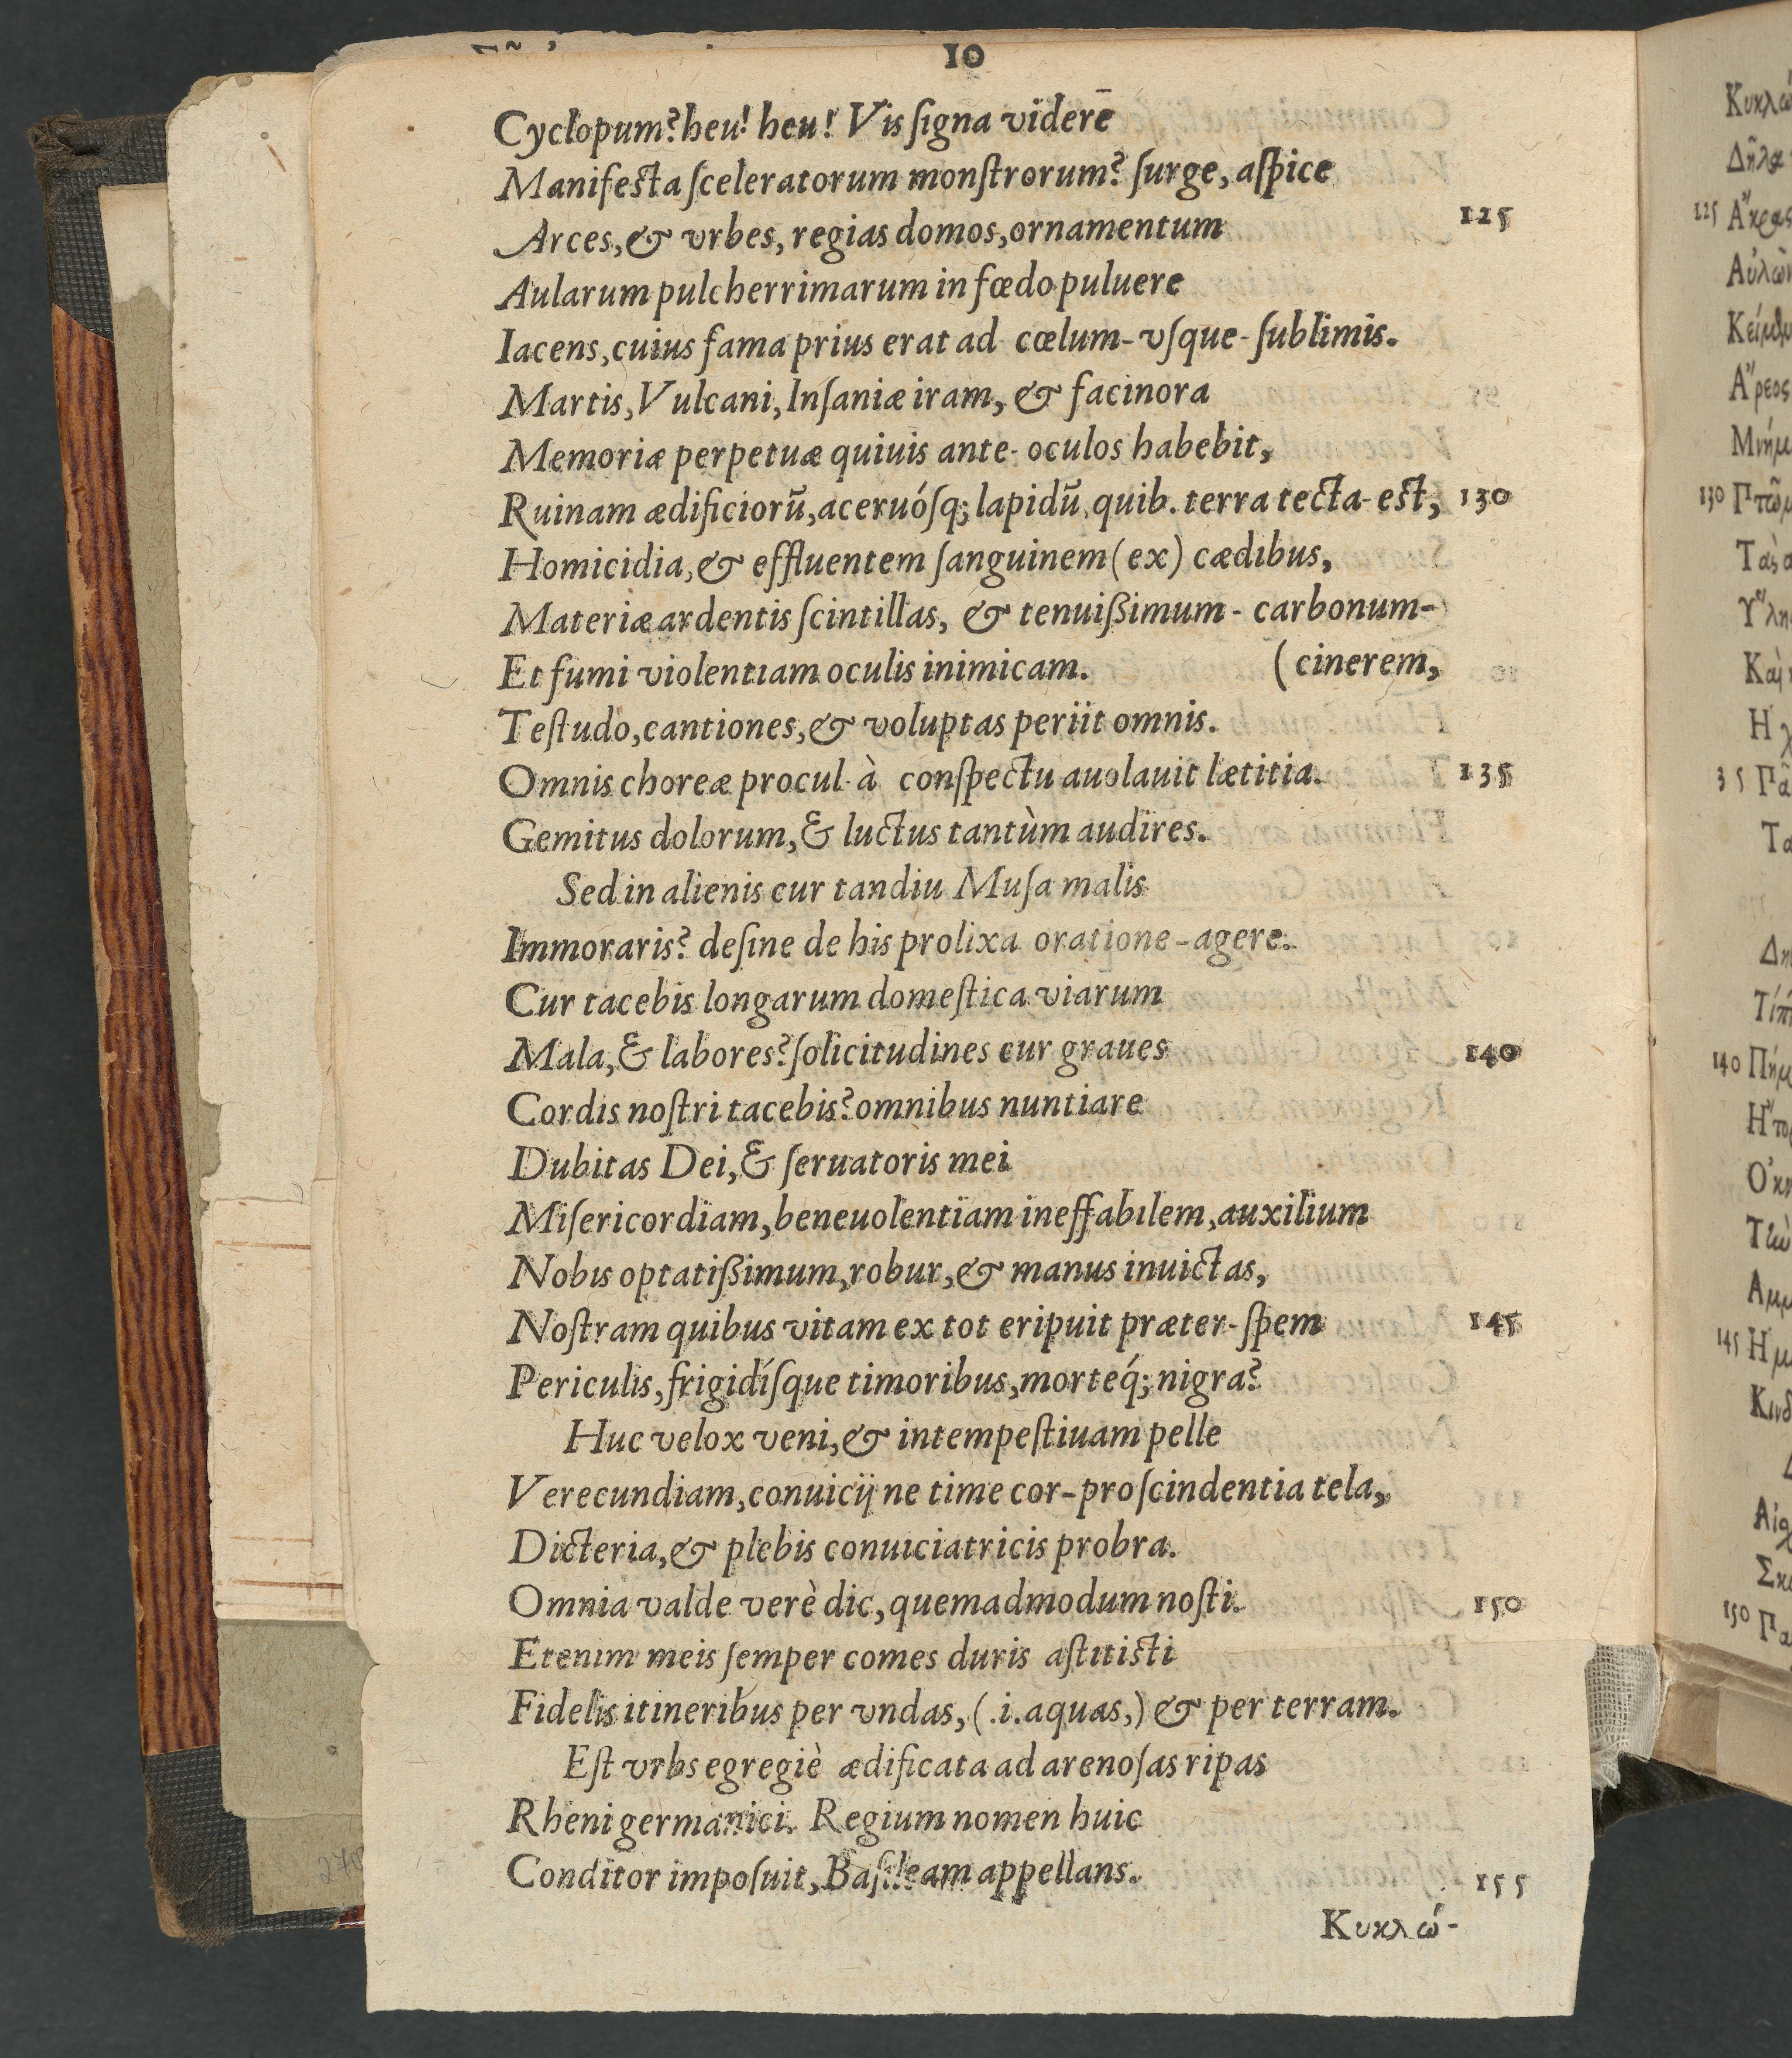 10
Cyclopum? heu! heu! Vis ſigna viderē
Manifesta ſceleratorum monſtrorum? ſurge, aſpice
Arces, & vrbes, regias domos, ornamentum 125
Aularum pulcherrimarum in fœdo puluere
Iacens, cuius fama prius erat ad cœlum-vſque-ſublimis.
Martis, Vulcani, Inſaniæ iram, & facinora
Memoriæ perpetuæ quiuis ante-oculos habebit,
Ruinam ædificiorū, aceruóſq; lapidū, quib. terra tecta-est, 130
Homicidia, & effluentem ſanguinem (ex) cædibus,
Materiæ ardentis ſcintillas, & tenuißimum-carbonum-
Et fumi violentiam oculis inimicam. (cinerem,
Teſtudo, cantiones, & voluptas periit omnis.
Omnis choreæ procul-à conſpectu auolauit lætitia. 135
Gemitus dolorum, & luctus tantùm audires.
Sed in alienis cur tandiu Muſa malis
Immoraris? deſine de his prolixa oratione-agere.
Cur tacebis longarum domeſtica viarum
Mala, & labores? ſolicitudines cur graues 140
Cordis noſtri tacebis? omnibus nuntiare
Dubitas Dei, & ſeruatoris mei
Miſericordiam, beneuolentiam ineffabilem, auxilium
Nobis optatißimum, robur, & manus inuictas,
Noſtram quibus vitam ex tot eripuit præter-ſpem 145
Periculis, frigidíſque timoribus, morteq́; nigra?
Huc velox veni, & intempeſtiuam pelle
Verecundiam, conuicij ne time cor-proſcindentia tela,
Dicteria, & plebis conuiciatricis probra.
Omnia valde verè dic, quemadmodum noſti. 150
Etenim meis ſemper comes duris aſtitisti
Fidelis itineribus per vndas, (.i. aquas,) & per terram.
Eſt vrbs egregiè ædificata ad arenoſas ripas
Rheni germanici. Regium nomen huic
Conditor impoſuit, Baſileam appellans. 155
Κυκλώ-
125
130
35
140
145
150